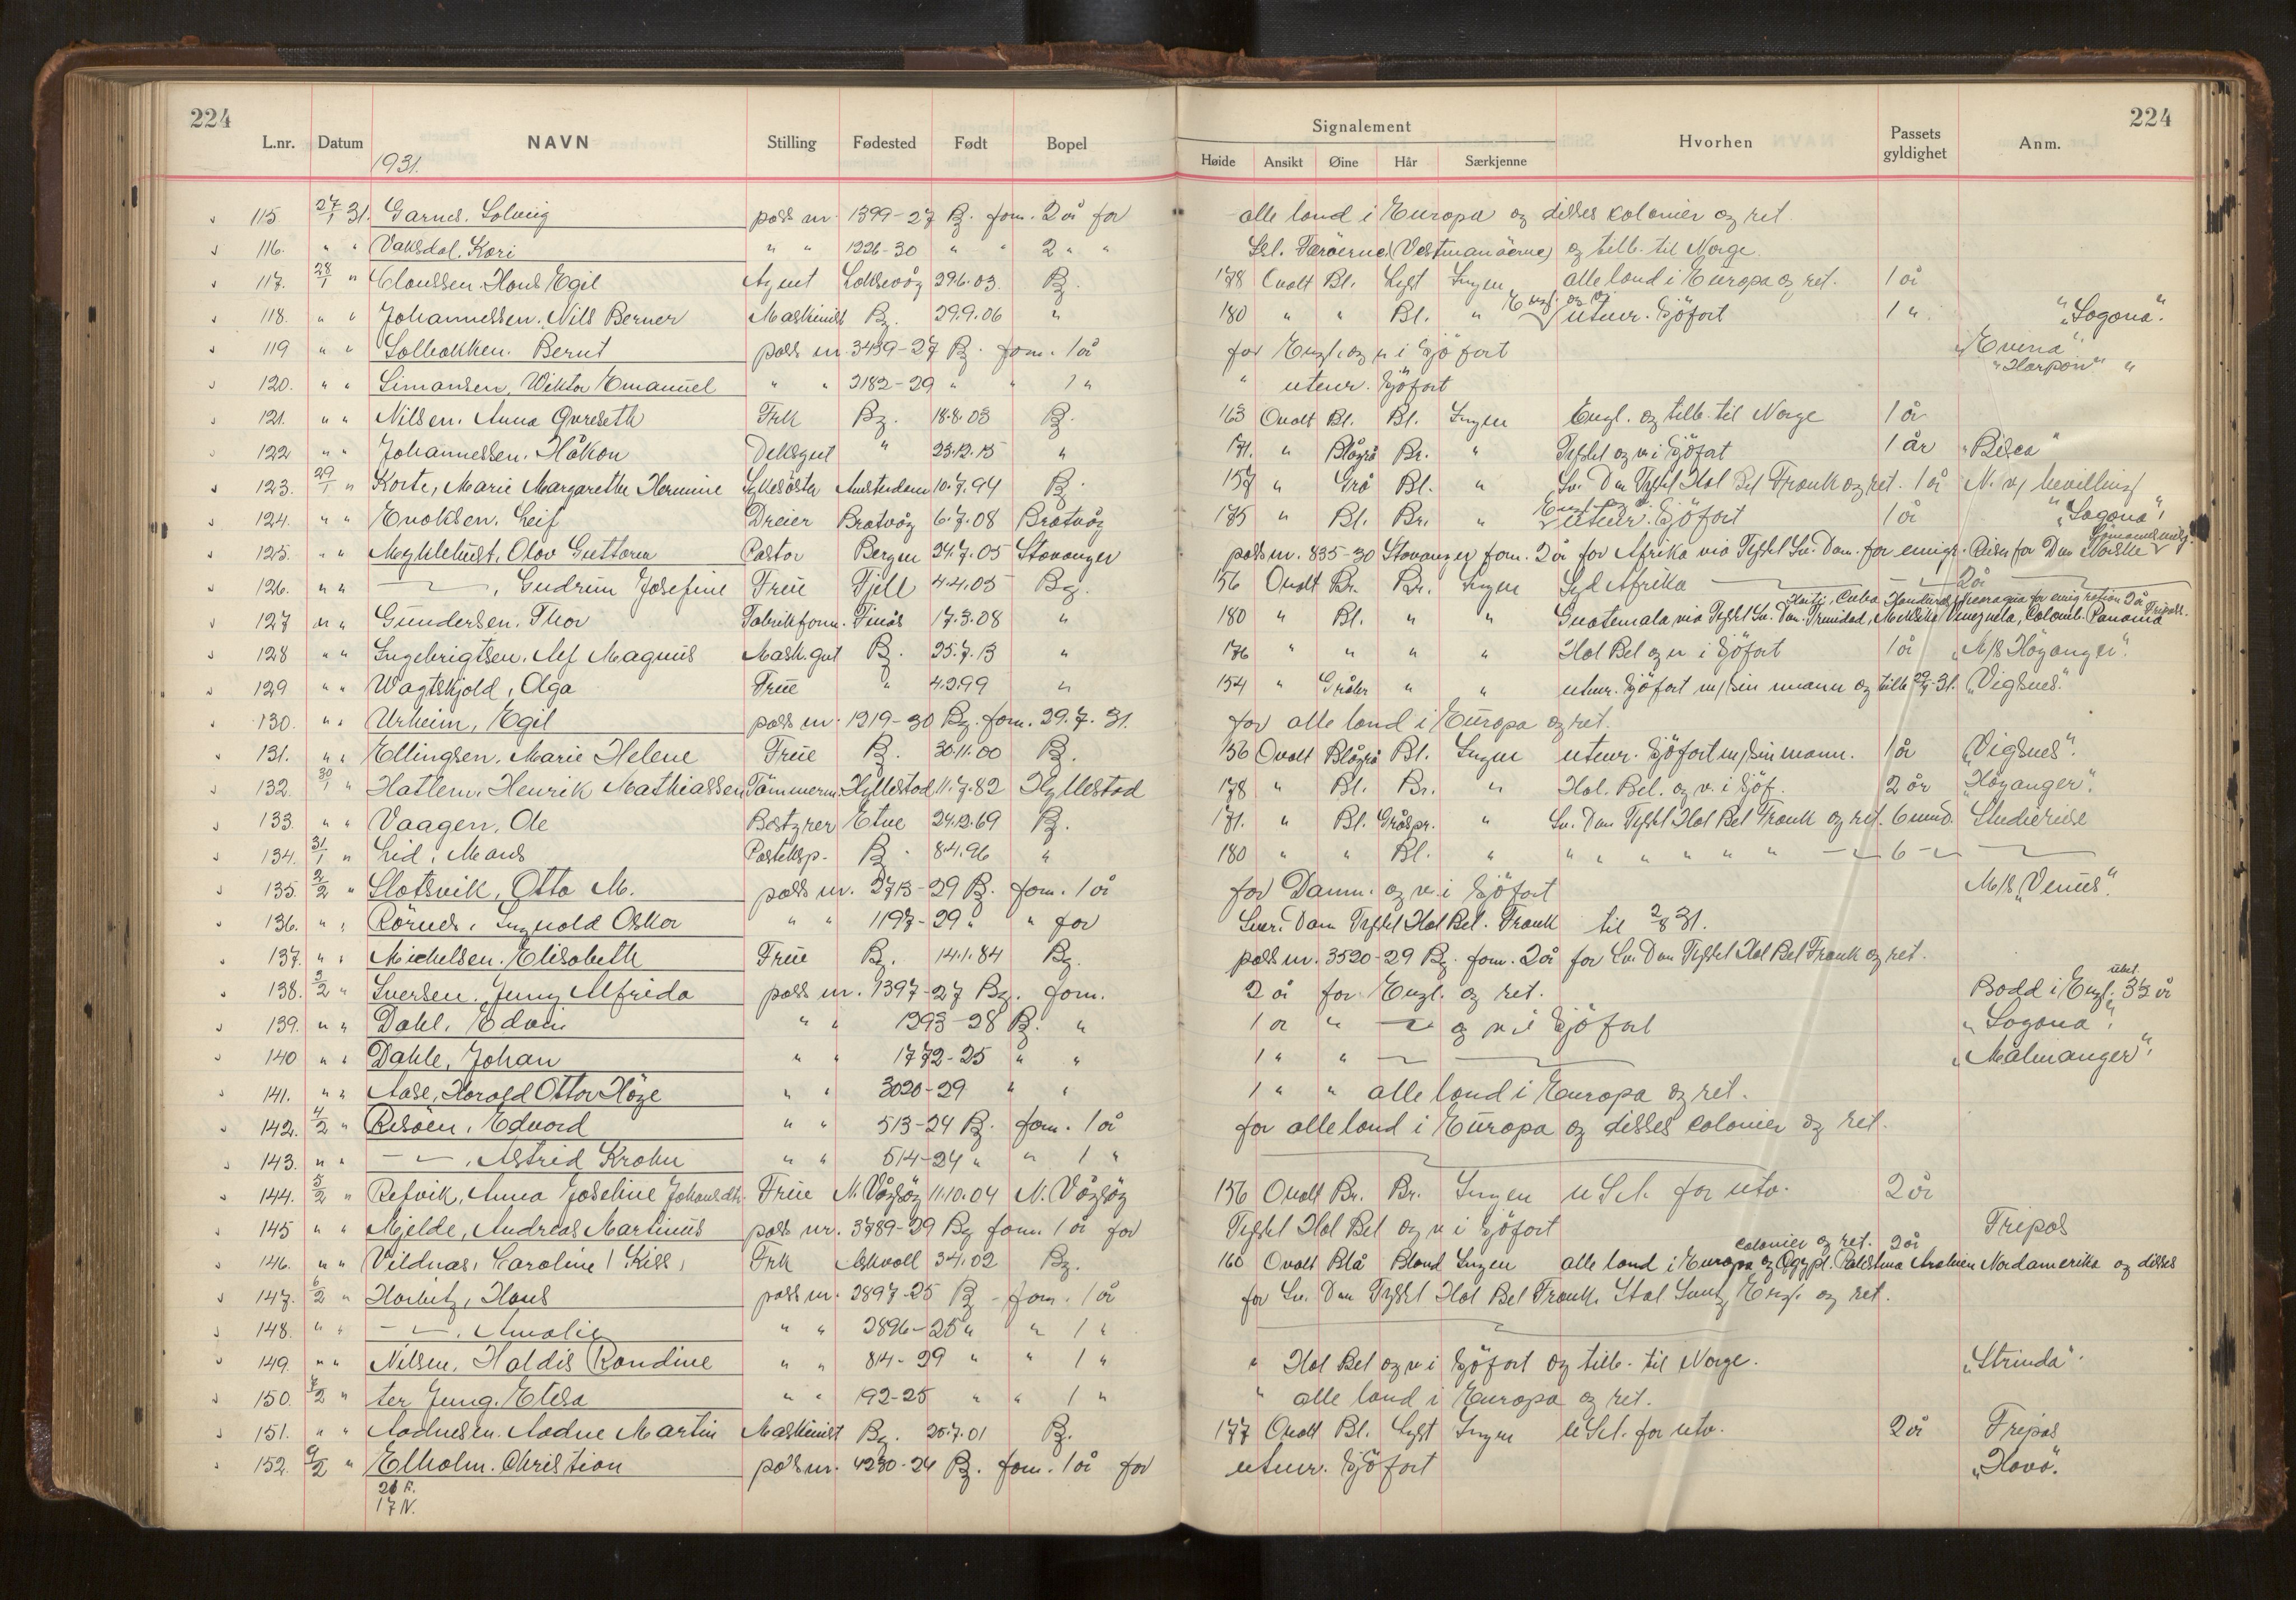 224
224
L.nr. Datum NAVN Stilling Fødested Født Bopel
Signalement
Høide Ansikt Øine Hår Særkjenne Hvorhen Passets gyldighet Anm.
1931.
115. 27/1 31. Garnes. Solveig pass nr. 1399-27 Bg. forn. 2 år for alle land i Europa og disses colonier og ret.
116. " " Vaksdal. Kari " " 1226-30 " " 2 " " Isl. Færøerne (Vestmanøerne) og tilb. til Norge.
117. 28/1 " Claussen. Hans Egil Agent Laksevåg 29.6.03. Bg. 178 Ovalt Bl. Lyst Ingen alle land i Europa og ret. 1 år
118. " " Johannessen. Nils Berner Maskinist Bg. 29.9.06 " 180 " " Bl. " Engl. og utenr. Sjöfart 1 " "Sogona".
119 " " Solbakken. Bernt pass nr. 3439-27 Bg. forn. 1 år for Engl. og v. i Sjöfart "Evina"
120. " " Simonsen, Wiktor Emanuel " " 2182-29 " " 1 " " utenr. Sjöfart "Harpon" "
121. " " Nilsen. Anna Qvreseth Frk Bg. 18.8.03 Bg. 163 Ovalt Bl. Bl. Ingen Engl. og tilb. til Norge 1 år
122 " " Johannessen. Håkon Dekksgut " 23.12.15 " 171. " Blågrå Br. " Tyskl og v. i Sjöfart 1 år "Bisca"
123. 29/1 " Korte, Marie Margarethe Hermine Sykesöster Amsterdam 10.7.94 Bg. 157 " Grå Bl. " Sv. Dan Tyskl Hol Bel Frank og ret. 1 år N. v/ bevilling
124. " " Enoksen. Leif Dreier Bratvåg 6.7.08 Bratvåg 175 " Bl. Br. " Engl. og utenr. Sjöfart 1 år "Sogona".
125. " " Myklebust. Olov Guttorm Pastor Bergen 24.7.05 Stavanger pass nr. 835-30 Stavanger forn. 2 år for Afrika via Tyskl Sv. Dan. for emigr. Reiser for Den Norske
126. " " —, Gudrun Josefine Frue Fjell 4.4.05 Bg. 156 Ovalt Br. Br. Ingen Syd Afrika — 2 år —
Haiti, Cuba, Honduras, Nicaragua for emigration 2 år
127 " " Gundersen. Thor Fabrikform. Finås 17.3.08 " 180 " Bl. " " Guatemala via Tyskl Sv. Dan. Trinidad, Meksiko Venezuela, Colomb. Panama
128 " " Ingebrigtsen. Alf Magnus Mask.gut Bg. 25.7.13 " 176 " " " " Hol Bel og v. i Sjöfart 1 år "M/S Höyanger".
129 " " Wagtskjold, Olga Frue " 4.2.99 " 154 " Gråbr " " utenr. Sjöfart m/sin mann og tilb 29/7-31. "Vigsnes".
130. " " Urheim, Egil pass nr. 1219-30 Bg. forn. 29.7.31. for alle land i Europa og ret.
131. " " Ellingsen. Marie Helene Frue Bg. 30.11.00 Bg. 156 Ovalt Blågrå Bl. Ingen utenr. Sjöfart m/sin mann. 1 år "Vigsnes".
132. 30/1 " Hatlem. Henrik Mathiassen Tömmerm. Hyllestad 11.7.82 Hyllestad 178 " Bl. Br. " Hol. Bel. og v. i Sjöf. 2 år "Höyanger".
133. " " Vaagen, Ole Bestyrer Etne 24.12.69 Bg. 171. " Bl. Gråspr. " Sv. Dan Tyskl Hol Bel Frank og ret. 6 mnd. Studiereise
134. 31/1 " Lid, Mons Posteksp. Bg. 8.4.96 " 180 " " Bl. " " " " " " " — 6 — —
135. 2/2 " Slotsvik, Otto M. pass nr. 2713-29 Bg. forn. 1 år for Danm. og v. i Sjöfart M/S "Venus".
136. " " Rörnes, Ingvald Oskar " " 1197-29 " " for Sver. Dan Tyskl Hol Bel. Frank til 2/8 31.
137. " " Michelsen. Elisabeth Frue Bg. 14.1.84 Bg. pass nr. 3520-29 Bg. forn. 2 år for Sv. Dan Tyskl Hol Bel Frank og ret.
138. 3/2 " Iversen. Jenny Alfrida pass nr. 1397-27 Bg. forn. 2 år for Engl. og ret. Bodd i Engl. 3½ år
139. " " Dahl, Edvin " " 1293-28 Bg. " 1 år " — og v. i Sjöfart "Sogona".
140 " " Dahle, Johan " " 1772-25 " " 1 " " — — "Målmanger".
141. " " Aase, Harald Ottar Höge " " 3020-29 " " 1 " " alle land i Europa og ret.
142. 4/2 " Risöen, Edvard " " 513-24 Bg. forn. 1 år for alle land i Europa og disses colonier og ret.
143. " " —, Astrid Krohn " " 514-24 " " 1 " —
144. 5/2 " Refvik, Anna Joseline Johansdtr. Frue N. Vågsöy 11.10.04 N. Vågsöy 156 Ovalt Br. Br. Ingen U.S.A. for utv. 2 år
145 " " Mjelde, Andreas Martinus pass nr. 3789-29 Bg forn. 1 år for Tyskl Hol Bel og v. i Sjöfart Tripos
colonier og ret. 2 år
146. " " Vildnas, Caroline (Kiss) Frk Askvoll 3.4.02 Bg. 160 Ovalt Blå Bland Ingen alle land i Europa og Egypt. Palestina Arabien Nordamerika og disses
147. 6/2 " Harbitz, Hans pass nr. 2897-25 Bg forn. 1 år for Sv. Dan Tyskl Hol Bel Frank. Ital Sveitz, Engl. og ret.
148. " " —, Amalie " " 2896-25 " " 1 " —
149. " " Nilsen, Haldis Randine " " 814-29 " " 1 " " Hol Bel og v. i Sjöfart og tilb. til Norge. "Strinda".
150. 7/2 " ter Jung. Elisa " " 92-25 " " 1 " " alle land i Europa og ret.
151. " " Aadnesen. Aadne Martin Maskinist Bg. 20.7.01 Bg. 177 Ovalt Bl. Lyst Ingen U.S.A. for utv. 2 år Tripos
152. 9/2 " Elholm. Christian pass nr. 4230-24 Bg. forn. 1 år for utenr. Sjöfart "Hovö".
17 N.